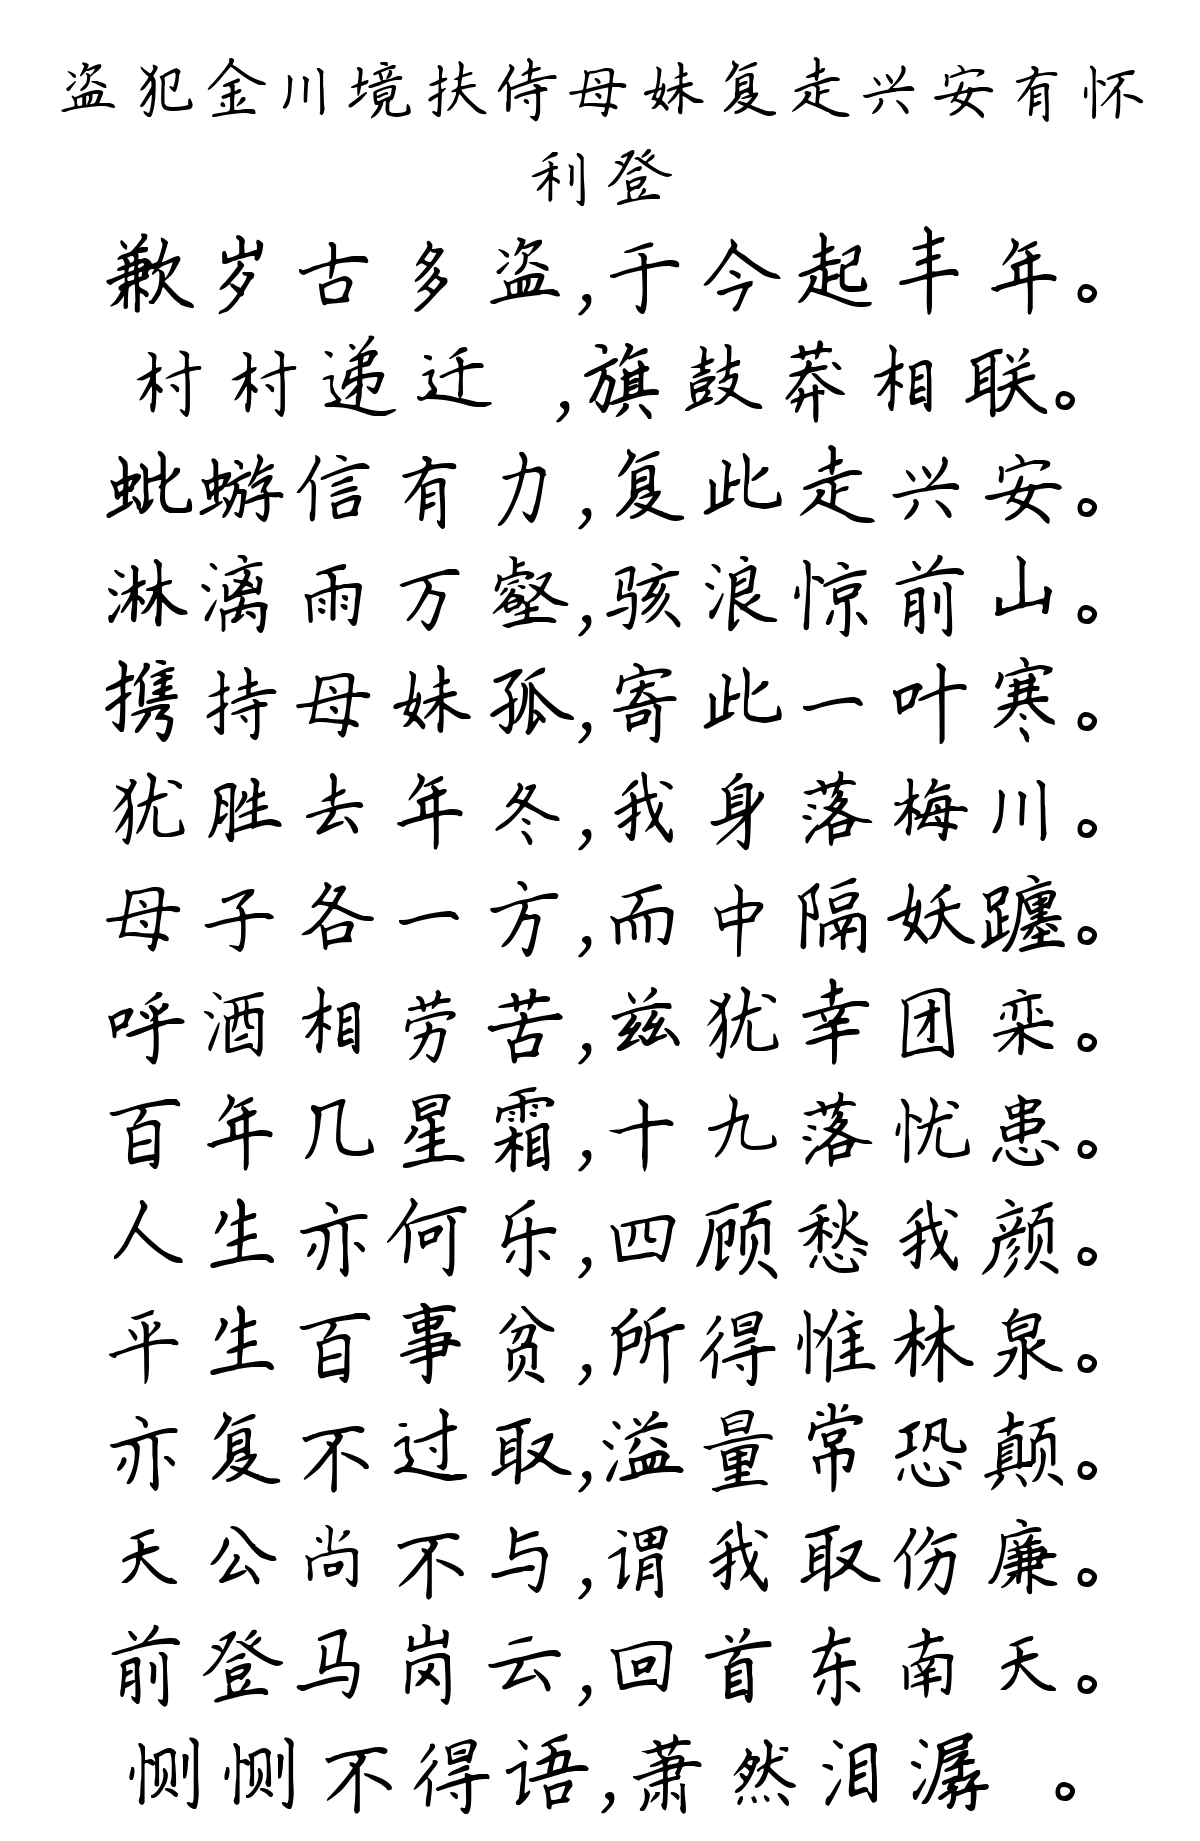 盗犯金川境扶侍母妹复走兴安有怀
利登
歉岁古多盗,于今起丰年。
村村递迁 ,旗鼓莽相联。
蚍蝣信有力,复此走兴安。
淋漓雨万壑,骇浪惊前山。
携持母妹孤,寄此一叶寒。
犹胜去年冬,我身落梅川。
母子各一方,而中隔妖躔。
呼酒相劳苦,兹犹幸团栾。
百年几星霜,十九落忧患。
人生亦何乐,四顾愁我颜。
平生百事贫,所得惟林泉。
亦复不过取,溢量常恐颠。
天公尚不与,谓我取伤廉。
前登马岗云,回首东南天。
恻恻不得语,萧然泪潺 。